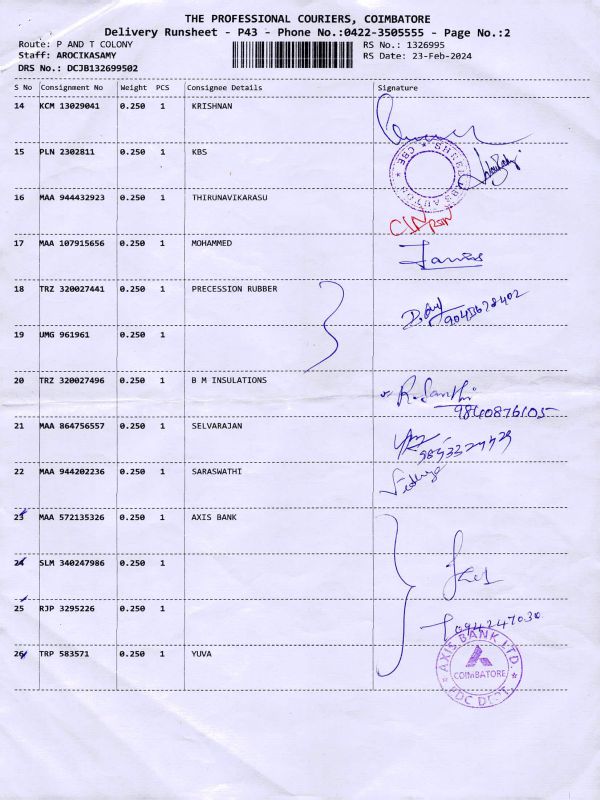 THE PROFESSIONAL COURIERS, COIMBATORE
Delivery Runsheet - P43 - Phone No.:0422-3505555 - Page No.:2
Route: P AND T COLONY
RS No.: 1326995
Staff: AROCIKASAMY
RS Date: 23-Feb-2024
DRS No.: DCJB132699502
S No Consignment No Weight PCS Consignee Details Signature
14 KCM 13029041 0.250 1 KRISHNAN
15 PLN 2302811 0.250 1 KBS
CBE
16 MAA 944432923 0.250 1 THIRUNAVIKARASU
17 MAA 107915656 0.250 1 MOHAMMED
18 TRZ 320027441 0.250 1 PRECESSION RUBBER
19 UMG 961961 0.250 1
20 TRZ 320027496 0.250 1 B M INSULATIONS R. Santhi
9840876105
21 MAA 864756557 0.250 1 SELVARAJAN
22 MAA 944202236 0.250 1 SARASWATHI
23 MAA 572135326 0.250 1 AXIS BANK
24 SLM 340247986 0.250 1
25 RJP 3295226 0.250 1
26 TRP 583571 0.250 1 YUVA
AXIS BANK LTD.
COIMBATORE
PDC DEPT.